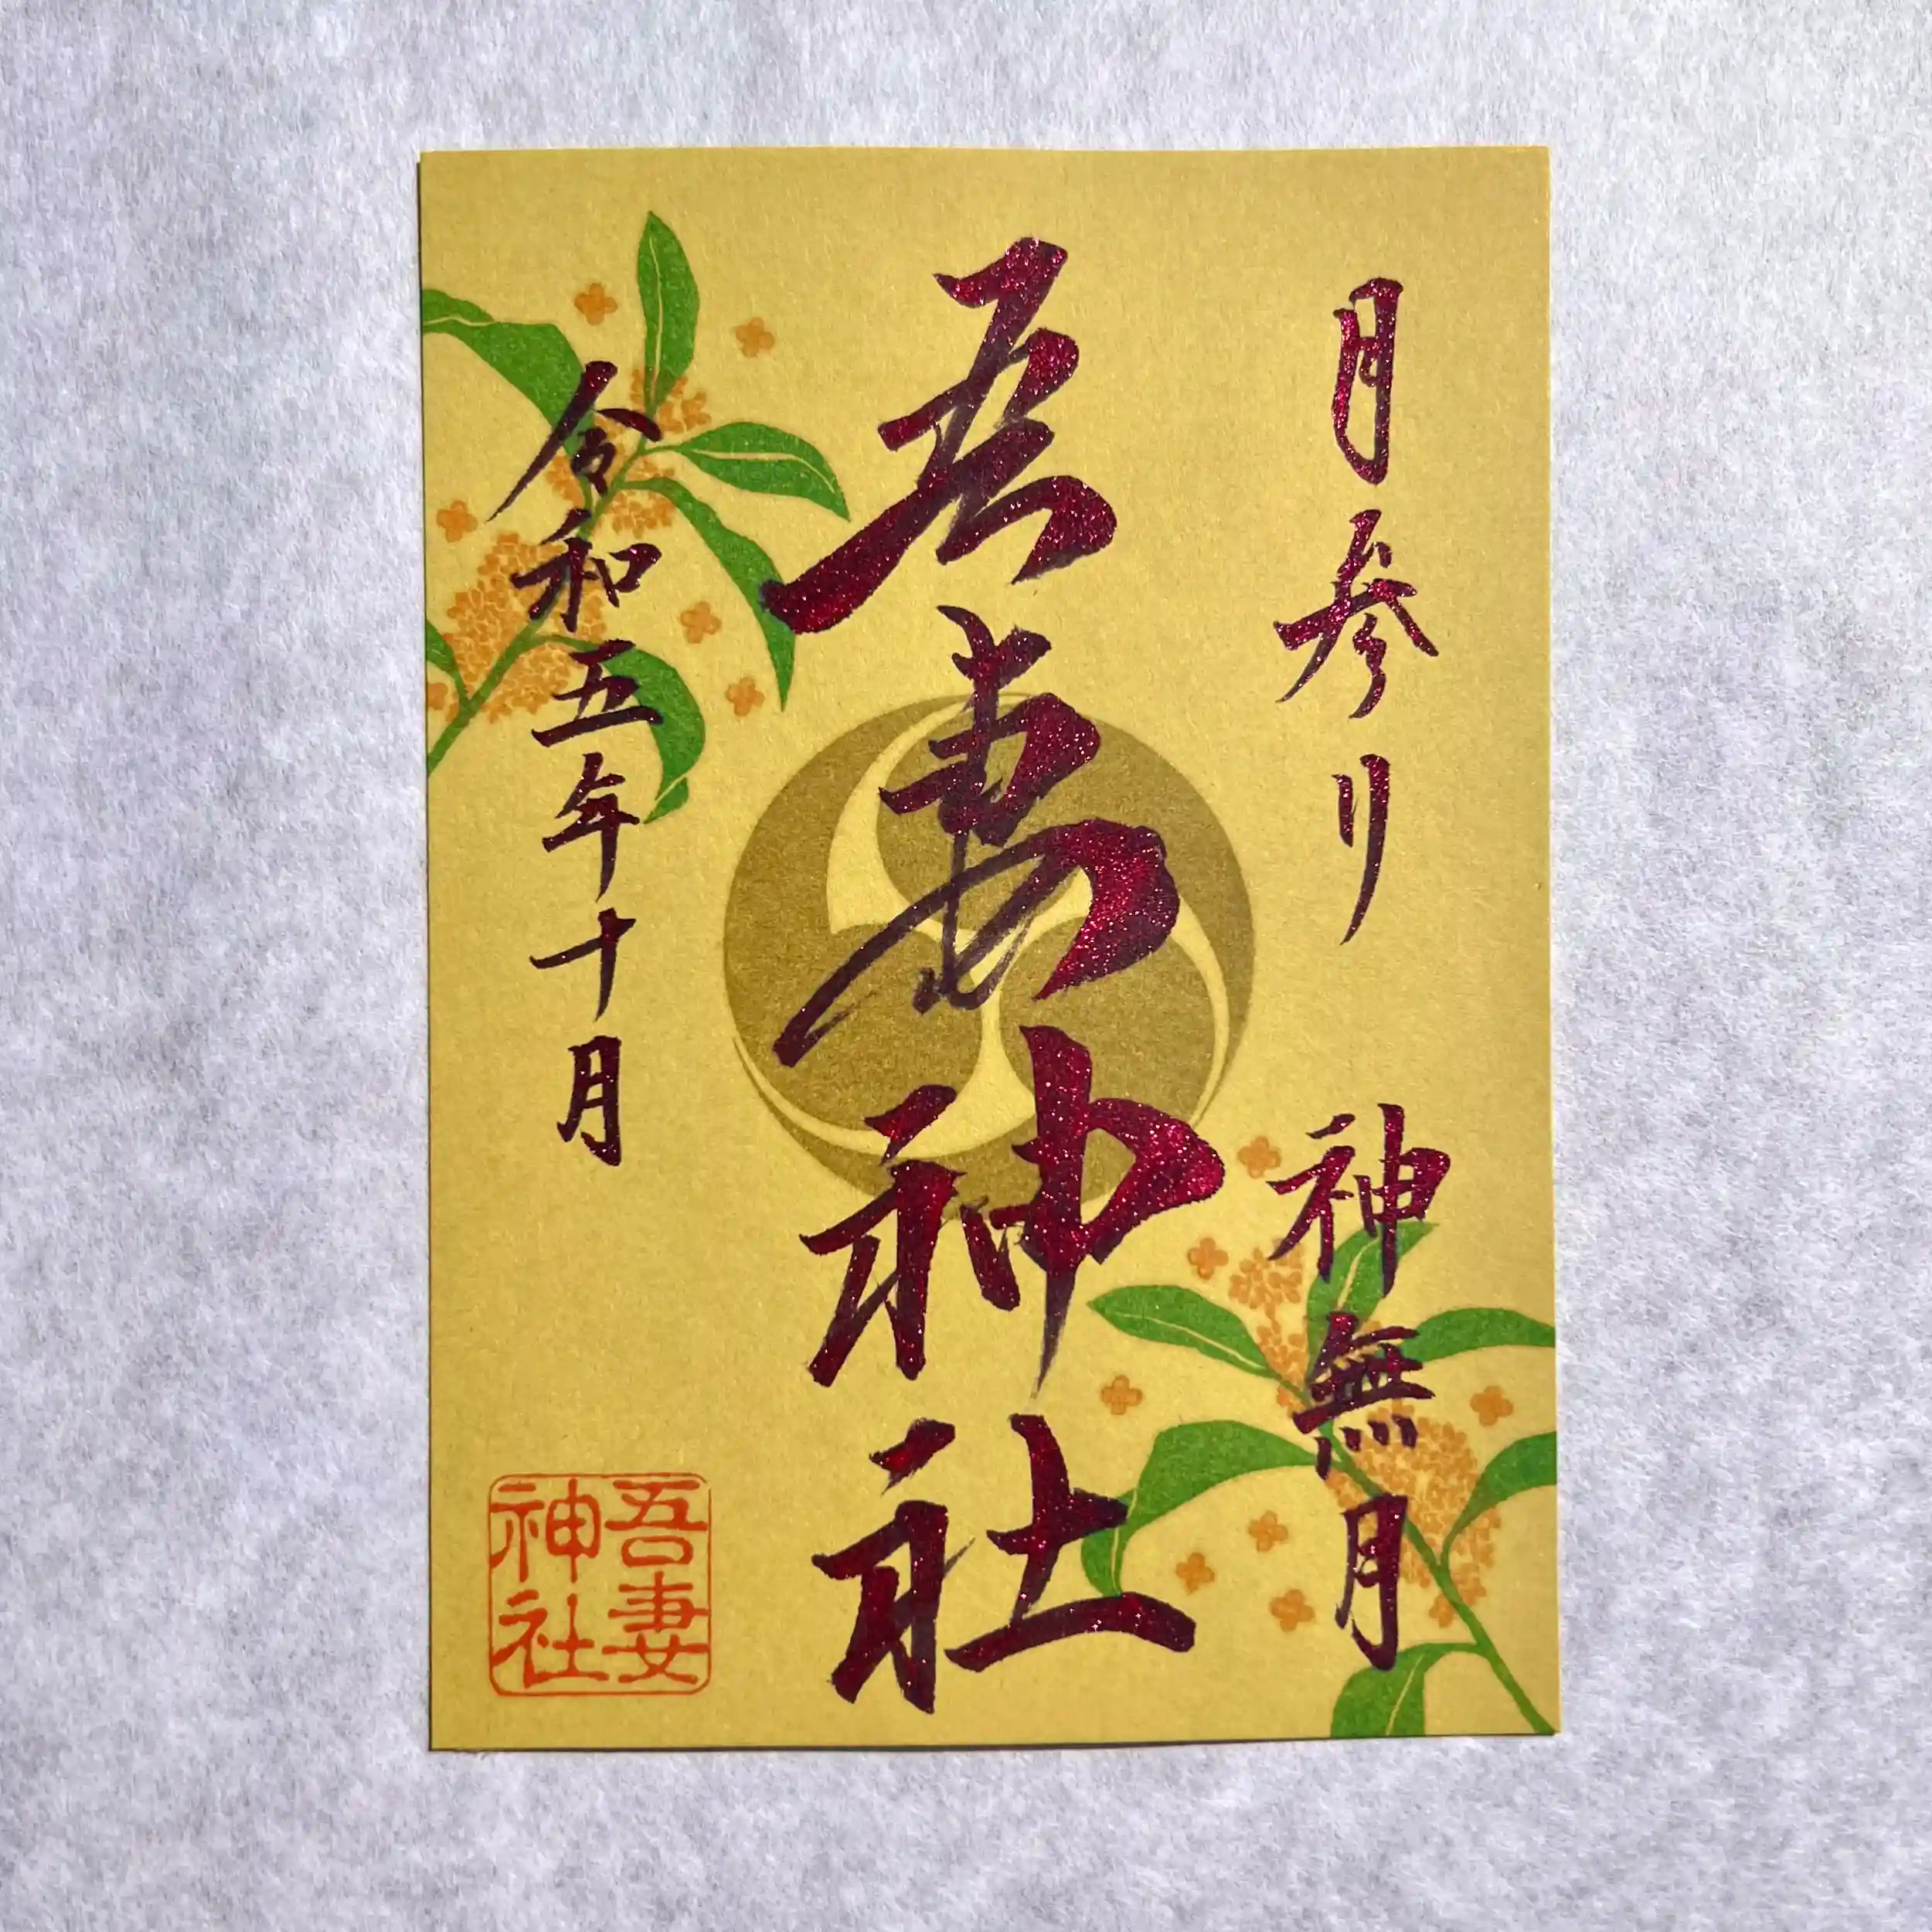 月参り 神無月
吾妻神社
令和五年十月
吾妻
神社